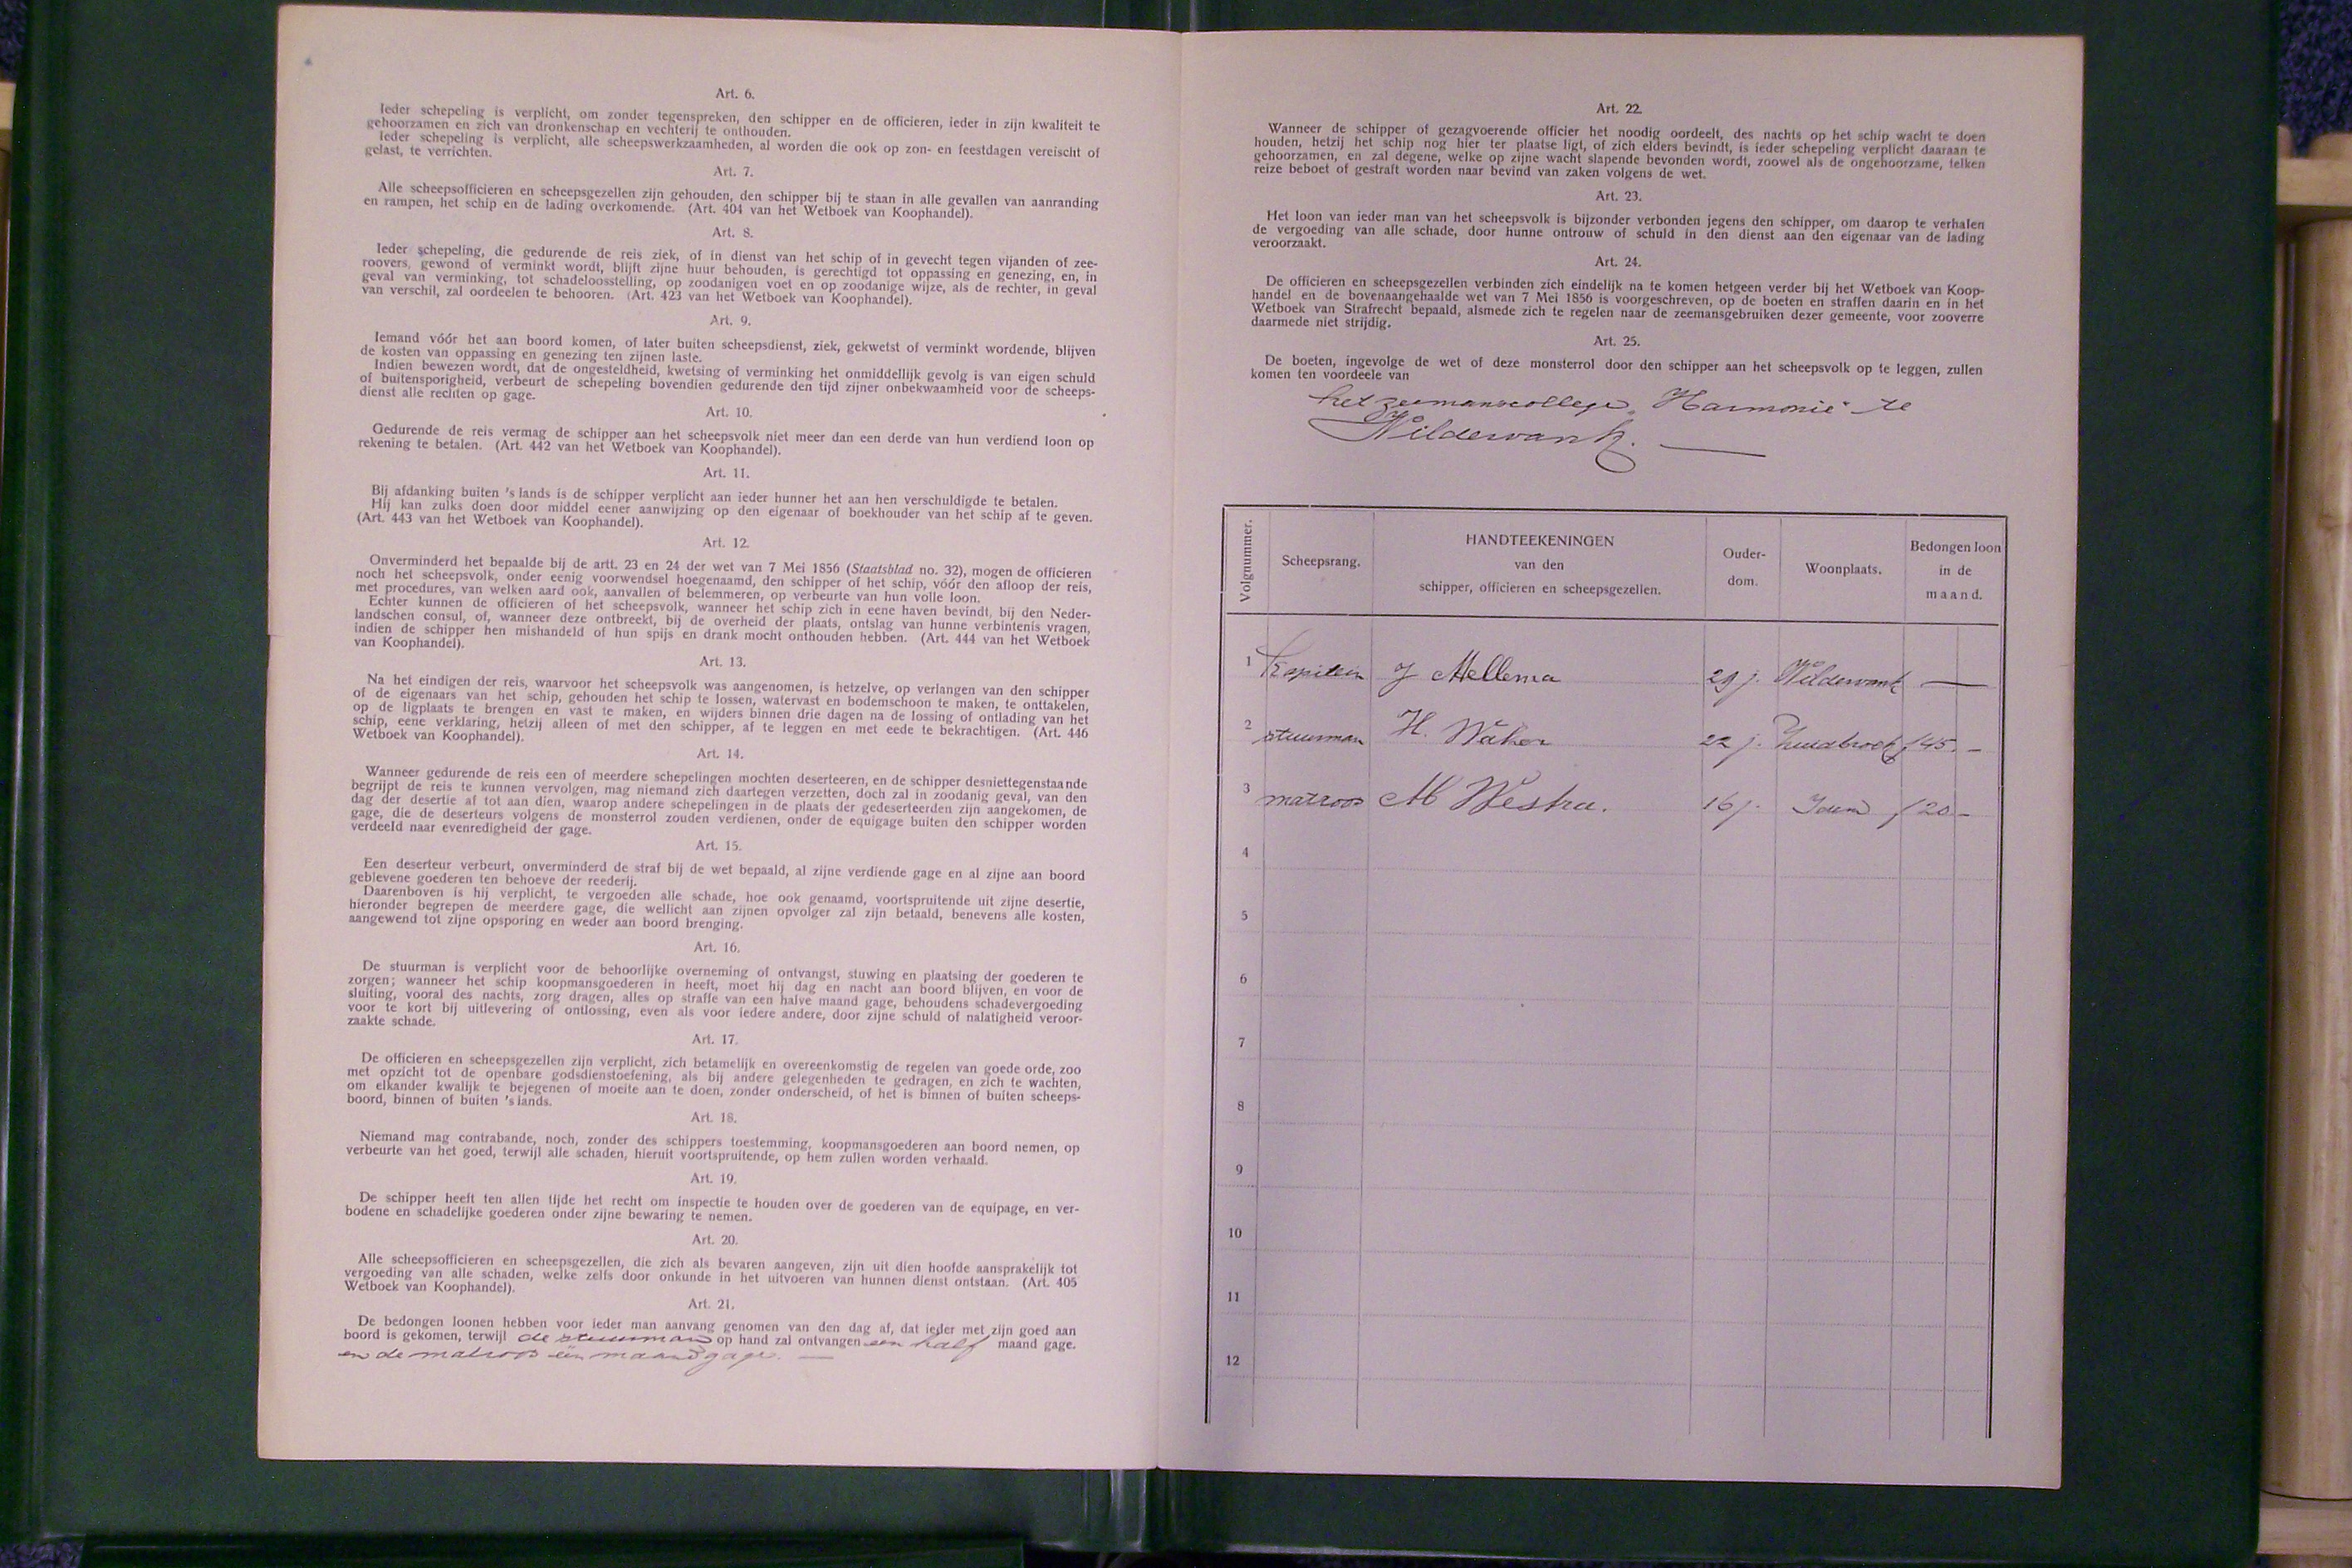 Art. 6.
Ieder schepeling is verplicht, om zonder tegenspreken, den schipper en de officieren, ieder in zijn kwaliteit te
gehoorzamen en zich van dronkenschap en vechterij te onthouden.
Ieder schepeling is verplicht, alle scheepswerkzaamheden, al worden die ook op zon- en feestdagen vereischt of
gelast, te verrichten.
Art. 7.
Alle scheepsofficieren en scheepsgezellen zijn gehouden, den schipper bij te staan in alle gevallen van aanranding
en rampen, het schip en de lading overkomende. (Art. 404 van het Wetboek van Koophandel).
Art. 8.
Ieder schepeling, die gedurende de reis ziek, of in dienst van het schip of in gevecht tegen vijanden of zee-
roovers, gewond of verminkt wordt, blijft zijne huur behouden, is gerechtigd tot oppassing en genezing, en, in
geval van verminking, tot schadeloosstelling, op zoodanigen voet en op zoodanige wijze, als de rechter, in geval
van verschil, zal oordeelen te behooren. (Art. 423 van het Wetboek van Koophandel).
Art. 9.
Iemand vóór het aan boord komen, of later buiten scheepsdienst, ziek, gekwetst of verminkt wordende, blijven
de kosten van oppassing en genezing ten zijnen laste.
Indien bewezen wordt, dat de ongesteldheid, kwetsing of verminking het onmiddellijk gevolg is van eigen schuld
of buitensporigheid, verbeurt de schepeling bovendien gedurende den tijd zijner onbekwaamheid voor de scheeps-
dienst alle rechten op gage.
Art. 10.
Gedurende de reis vermag de schipper aan het scheepsvolk niet meer dan een derde van hun verdiend loon op
rekening te betalen. (Art. 442 van het Wetboek van Koophandel).
Art. 11.
Bij afdanking buiten 's lands is de schipper verplicht aan ieder hunner het aan hen verschuldigde te betalen.
Hij kan zulks doen door middel eener aanwijzing op den eigenaar of boekhouder van het schip af te geven.
(Art. 443 van het Wetboek van Koophandel).
Art. 12.
Onverminderd het bepaalde bij de artt. 23 en 24 der wet van 7 Mei 1856 (Staatsblad no. 32), mogen de officieren
noch het scheepsvolk, onder eenig voorwendsel hoegenaamd, den schipper of het schip, vóór den afloop der reis,
met procedures, van welken aard ook, aanvallen of belemmeren, op verbeurte van hun volle loon.
Echter kunnen de officieren of het scheepsvolk, wanneer het schip zich in eene haven bevindt, bij den Neder-
landschen consul, of, wanneer deze ontbreekt, bij de overheid der plaats, ontslag van hunne verbintenis vragen,
indien de schipper hen mishandeld of hun spijs en drank mocht onthouden hebben. (Art. 444 van het Wetboek
van Koophandel).
Art. 13.
Na het eindigen der reis, waarvoor het scheepsvolk was aangenomen, is hetzelve, op verlangen van den schipper
of de eigenaars van het schip, gehouden het schip te lossen, watervast en bodemschoon te maken, te onttakelen,
op de ligplaats te brengen en vast te maken, en wijders binnen drie dagen na de lossing of ontlading van het
schip, eene verklaring, hetzij alleen of met den schipper, af te leggen en met eede te bekrachtigen. (Art. 446
Wetboek van Koophandel).
Art. 14.
Wanneer gedurende de reis een of meerdere schepelingen mochten deserteeren, en de schipper desniettegenstaande
begrijpt de reis te kunnen vervolgen, mag niemand zich daartegen verzetten, doch zal in zoodanig geval, van den
dag der desertie af tot aan dien, waarop andere schepelingen in de plaats der gedeserteerden zijn aangekomen, de
gage, die de deserteurs volgens de monsterrol zouden verdienen, onder de equigage buiten den schipper worden
verdeeld naar evenredigheid der gage.
Art. 15.
Een deserteur verbeurt, onverminderd de straf bij de wet bepaald, al zijne verdiende gage en al zijne aan boord
geblevene goederen ten behoeve der reederij.
Daarenboven is hij verplicht, te vergoeden alle schade, hoe ook genaamd, voortspruitende uit zijne desertie,
hieronder begrepen de meerdere gage, die wellicht aan zijnen opvolger zal zijn betaald, benevens alle kosten,
aangewend tot zijne opsporing en weder aan boord brenging.
Art. 16.
De stuurman is verplicht voor de behoorlijke overneming of ontvangst, stuwing en plaatsing der goederen te
zorgen; wanneer het schip koopmansgoederen in heeft, moet hij dag en nacht aan boord blijven, en voor de
sluiting, vooral des nachts, zorg dragen, alles op straffe van een halve maand gage, behoudens schadevergoeding
voor te kort bij uitlevering of ontlossing, even als voor iedere andere, door zijne schuld of nalatigheid veroor-
zaakte schade.
Art. 17.
De officieren en scheepsgezellen zijn verplicht, zich betamelijk en overeenkomstig de regelen van goede orde, zoo
met opzicht tot de openbare godsdienstoefening, als bij andere gelegenheden te gedragen, en zich te wachten,
om elkander kwalijk te bejegenen of moeite aan te doen, zonder onderscheid, of het is binnen of buiten scheeps-
boord, binnen of buiten 's lands.
Art. 18.
Niemand mag contrabande, noch, zonder des schippers toestemming, koopmansgoederen aan boord nemen, op
verbeurte van het goed, terwijl alle schaden, hieruit voortspruitende, op hem zullen worden verhaald.
Art. 19.
De schipper heeft ten allen tijde het recht om inspectie te houden over de goederen van de equipage, en ver-
bodene en schadelijke goederen onder zijne bewaring te nemen.
Art. 20.
Alle scheepsofficieren en scheepsgezellen, die zich als bevaren aangeven, zijn uit dien hoofde aansprakelijk tot
vergoeding van alle schaden, welke zelfs door onkunde in het uitvoeren van hunnen dienst ontstaan. (Art. 405
Wetboek van Koophandel).
Art. 21.
De bedongen loonen hebben voor ieder man aanvang genomen van den dag af, dat ieder met zijn goed aan
boord is gekomen, terwijl de stuurman op hand zal ontvangen een half maand gage.
en de matroos één maand gage. —
Art. 22.
Wanneer de schipper of gezagvoerende officier het noodig oordeelt, des nachts op het schip wacht te doen
houden, hetzij het schip nog hier ter plaatse ligt, of zich elders bevindt, is ieder schepeling verplicht daaraan te
gehoorzamen, en zal degene, welke op zijne wacht slapende bevonden wordt, zoowel als de ongehoorzame, telken
reize beboet of gestraft worden naar bevind van zaken volgens de wet.
Art. 23.
Het loon van ieder man van het scheepsvolk is bijzonder verbonden jegens den schipper, om daarop te verhalen
de vergoeding van alle schade, door hunne ontrouw of schuld in den dienst aan den eigenaar van de lading
veroorzaakt.
Art. 24.
De officieren en scheepsgezellen verbinden zich eindelijk na te komen hetgeen verder bij het Wetboek van Koop-
handel en de bovenaangehaalde wet van 7 Mei 1856 is voorgeschreven, op de boeten en straffen daarin en in het
Wetboek van Strafrecht bepaald, alsmede zich te regelen naar de zeemansgebruiken dezer gemeente, voor zooverre
daarmede niet strijdig.
Art. 25.
De boeten, ingevolge de wet of deze monsterrol door den schipper aan het scheepsvolk op te leggen, zullen
komen ten voordeele van
het zeemanscollege „Harmonie" te
Wildervank. —
Volgnummer. Scheepsrang. HANDTEEKENINGEN van den schipper, officieren en scheepsgezellen. Ouder-dom. Woonplaats. Bedongen loon in de maand.
1 Kapitein J Mellema 29 j. Wildervank —
2 stuurman H. Waker 22 j. Zuidbroek f 45.-
3 matroos M Westra. 16 j. f 20.-
4
5
6
7
8
9
10
11
12